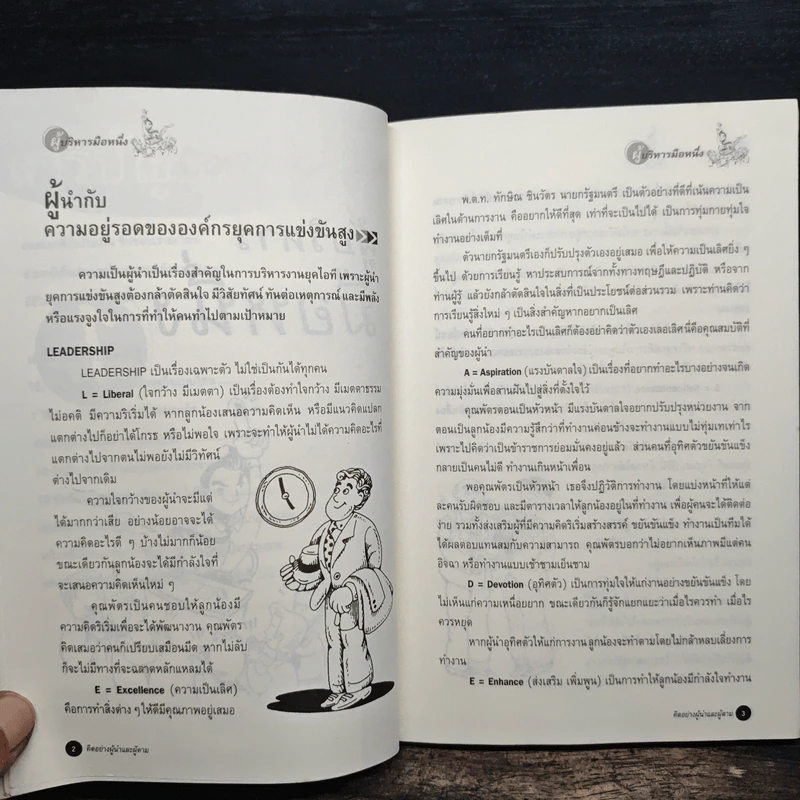 ผู้บริหารมือหนึ่ง
ผู้นำกับ
ความอยู่รอดขององค์กรยุคการแข่งขันสูง
ความเป็นผู้นำเป็นเรื่องสำคัญในการบริหารงานยุคไอที เพราะผู้นำ
ยุคการแข่งขันสูงต้องกล้าตัดสินใจ มีวิสัยทัศน์ ทันต่อเหตุการณ์ และมีพลัง
หรือแรงจูงใจในการที่ทำให้คนทำไปตามเป้าหมาย
LEADERSHIP
LEADERSHIP เป็นเรื่องเฉพาะตัว ไม่ใช่เป็นกันได้ทุกคน
L = Liberal (ใจกว้าง มีเมตตา) เป็นเรื่องต้องทำใจกว้าง มีเมตตาธรรม
ไม่อคติ มีความริเริ่มได้ หากลูกน้องเสนอความคิดเห็น หรือมีแนวคิดแปลก
แตกต่างไปก็อย่าได้โกรธ หรือไม่พอใจ เพราะจะทำให้ผู้นำไม่ได้ความคิดอะไรที่
แตกต่างไปจากตนไม่พอยังไม่มีวิทัศน์
ต่างไปจากเดิม
ความใจกว้างของผู้นำจะมีแต่
ได้มากกว่าเสีย อย่างน้อยอาจจะได้
ความคิดอะไรดี ๆ บ้างไม่มากก็น้อย
ขณะเดียวกันลูกน้องจะได้มีกำลังใจที่
จะเสนอความคิดเห็นใหม่ ๆ
คุณพัตรเป็นคนชอบให้ลูกน้องมี
ความคิดริเริ่มเพื่อจะได้พัฒนางาน คุณพัตร
คิดเสมอว่าคนก็เปรียบเสมือนมีด หากไม่ลับ
ก็จะไม่มีทางที่จะฉลาดหลักแหลมได้
E = Excellence (ความเป็นเลิศ)
คือการทำสิ่งต่าง ๆ ให้ดีมีคุณภาพอยู่เสมอ
2 คิดอย่างผู้นำและผู้ตาม
ผู้บริหารมือหนึ่ง
พ.ต.ท. ทักษิณ ชินวัตร นายกรัฐมนตรี เป็นตัวอย่างที่ดีที่เน้นความเป็น
เลิศในด้านการงาน คืออยากให้ดีที่สุด เท่าที่จะเป็นไปได้ เป็นการทุ่มกายทุ่มใจ
ทำงานอย่างเต็มที่
ตัวนายกรัฐมนตรีเองก็ปรับปรุงตัวเองอยู่เสมอ เพื่อให้ความเป็นเลิศยิ่ง ๆ
ขึ้นไป ด้วยการเรียนรู้ หาประสบการณ์จากทั้งทางทฤษฎีและปฏิบัติ หรือจาก
ท่านผู้รู้ แล้วยังกล้าตัดสินใจในสิ่งที่เป็นประโยชน์ต่อส่วนรวม เพราะท่านคิดว่า
การเรียนรู้สิ่งใหม่ ๆ เป็นสิ่งสำคัญหากอยากเป็นเลิศ
คนที่อยากทำอะไรเป็นเลิศก็ต้องอย่าคิดว่าตัวเองเลอเลิศ นี่คือคุณสมบัติที่
สำคัญของผู้นำ
A = Aspiration (แรงบันดาลใจ) เป็นเรื่องที่อยากทำอะไรบางอย่างจนเกิด
ความมุ่งมั่นเพื่อสานฝันไปสู่สิ่งที่ตั้งใจไว้
คุณพัตรตอนเป็นหัวหน้า มีแรงบันดาลใจอยากปรับปรุงหน่วยงาน จาก
ตอนเป็นลูกน้องมีความรู้สึกว่าที่ทำงานค่อนข้างจะทำงานแบบไม่ทุ่มเทเท่าไร
เพราะไปคิดว่าเป็นข้าราชการย่อมมั่นคงอยู่แล้ว ส่วนคนที่อุทิศตัวขยันขันแข็ง
กลายเป็นคนไม่ดี ทำงานเกินหน้าเพื่อน
พอคุณพัตรเป็นหัวหน้า เธอจึงปฏิวัติการทำงาน โดยแบ่งหน้าที่ให้แต่
ละคนรับผิดชอบ และมีตารางเวลาให้ลูกน้องอยู่ในที่ทำงาน เพื่อผู้คนจะได้ติดต่อ
ง่าย รวมทั้งส่งเสริมผู้ที่มีความคิดริเริ่มสร้างสรรค์ ขยันขันแข็ง ทำงานเป็นทีมได้
ได้ผลตอบแทนสมกับความสามารถ คุณพัตรบอกว่าไม่อยากเห็นภาพมีแต่คน
อิจฉา หรือทำงานแบบเช้าชามเย็นชาม
D = Devotion (อุทิศตัว) เป็นการทุ่มใจให้แก่งานอย่างขยันขันแข็ง โดย
ไม่เห็นแก่ความเหนื่อยยาก ขณะเดียวกันก็รู้จักแยกแยะว่าเมื่อไรควรทำ เมื่อไร
ควรหยุด
หากผู้นำอุทิศตัวให้แก่การงาน ลูกน้องจะทำตามโดยไม่กล้าหลบเลี่ยงการ
ทำงาน
E = Enhance (ส่งเสริม เพิ่มพูน) เป็นการทำให้ลูกน้องมีกำลังใจทำงาน
คิดอย่างผู้นำและผู้ตาม 3